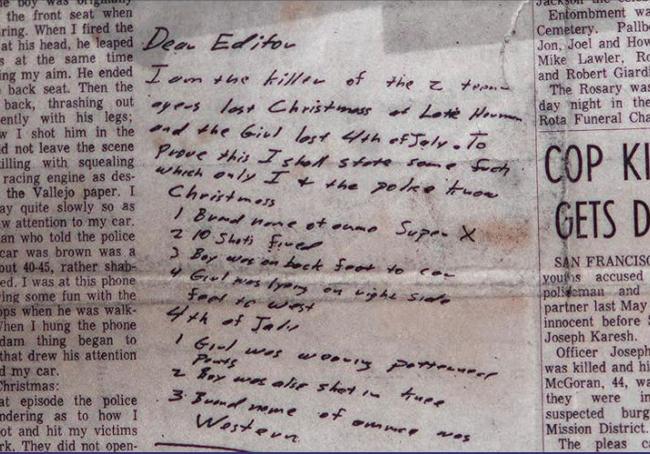 he boy was originally
the front seat when
ring. When I fired the
at his head, he leaped
s at the same time
ing my aim. He ended
back seat. Then the
back, thrashing out
ently with his legs;
w I shot him in the
d not leave the scene
illing with squealing
racing engine as des-
the Vallejo paper. I
ay quite slowly so as
w attention to my car.
an who told the police
car was brown was a
out 40-45, rather shab-
ed. I was at this phone
ing some fun with the
ops when he was walk-
When I hung the phone
dam thing began to
that drew his attention
d my car.
Christmas:
at episode the police
ndering as to how I
ot and hit my victims
rk. They did not open-
Dear Editor
I am the killer of the 2 teen
agers last Christmass at Lake Herman
and the Girl last 4th of July. To
prove this I shall state some facts
which only I + the police know
Christmass
1 Brand name of ammo Super X
2 10 Shots fired
3 Boy was on back feet to car
4 Girl was lyeing on right side
feet to west
4th of July
1 Girl was wearing patterned
pants
2 Boy was also shot in knee
3 Brand name of ammo was
Western
Entombment wa
Cemetery. Pallb
Jon, Joel and How
Mike Lawler, Ro
and Robert Giardi
The Rosary was
day night in the
Rota Funeral Cha
COP KI
GETS D
SAN FRANCISC
youths accused
policeman and
partner last May
innocent before S
Joseph Karesh.
Officer Joseph
was killed and hi
McGoran, 44, wa
they were in
suspected burg
Mission District.
The pleas ca